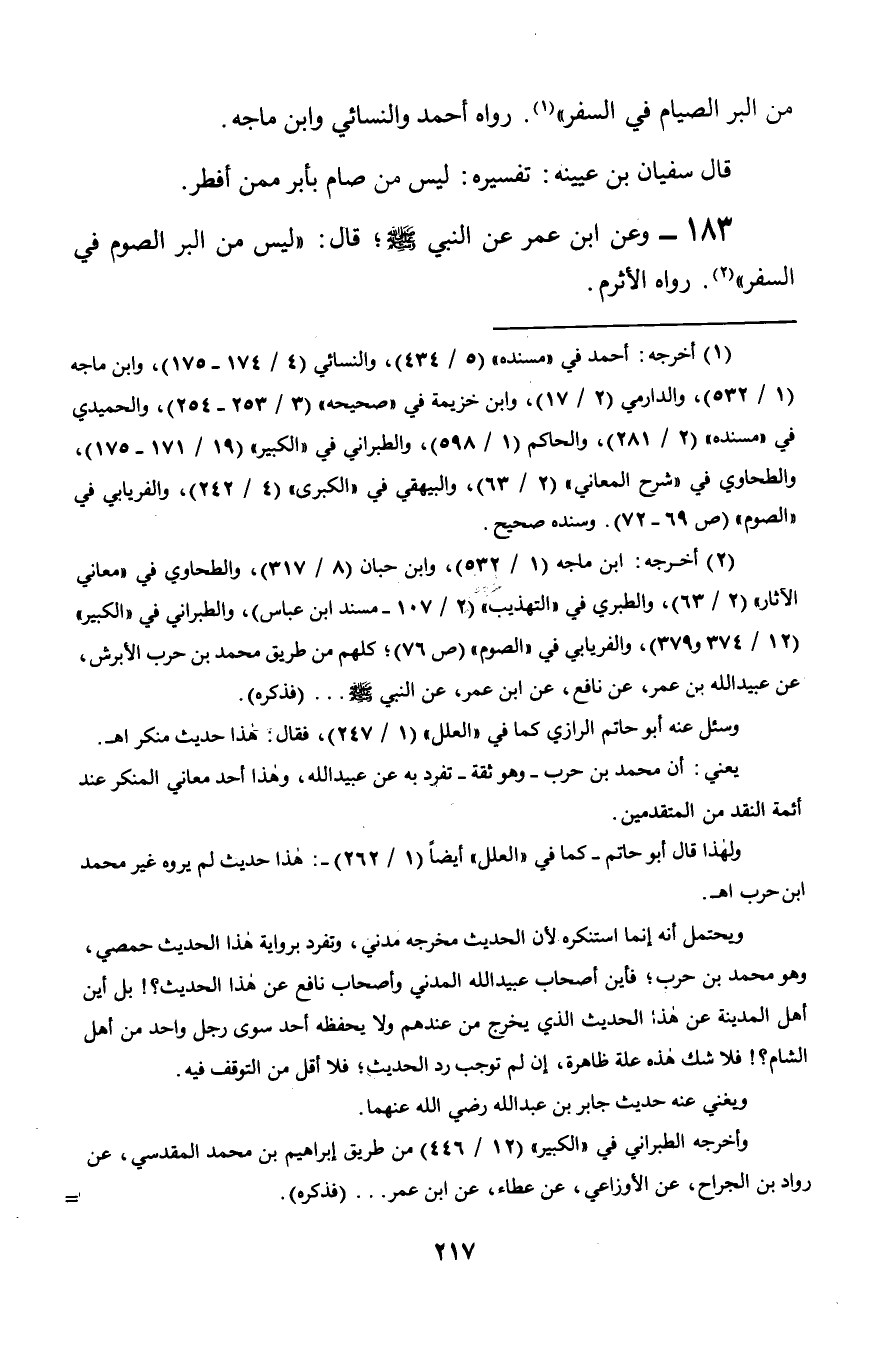 من البر الصيام في السفر»(١). رواه أحمد والنسائي وابن ماجه.
قال سفيان بن عيينه: تفسيره: ليس من صام بأبر ممن أفطر.
١٨٣ ـ وعن ابن عمر عن النبي ﷺ؛ قال: «ليس من البر الصوم في
السفر»(٢). رواه الأثرم.
(١) أخرجه: أحمد في «مسنده» (٥ / ٤٣٤)، والنسائي (٤ / ١٧٤ ـ ١٧٥)، وابن ماجه
(١ / ٥٣٢)، والدارمي (٢ / ١٧)، وابن خزيمة في «صحيحه» (٣ / ٢٥٣ ـ ٢٥٤)، والحميدي
في «مسنده» (٢ / ٢٨١)، والحاكم (١ / ٥٩٨)، والطبراني في «الكبير» (١٩ / ١٧١ ـ ١٧٥)،
والطحاوي في «شرح المعاني» (٢ / ٦٣)، والبيهقي في «الكبرى» (٤ / ٢٤٢)، والفريابي في
«الصوم» (ص ٦٩ ـ ٧٢). وسنده صحيح.
(٢) أخرجه: ابن ماجه (١ / ٥٣٢)، وابن حبان (٨ / ٣١٧)، والطحاوي في «معاني
الآثار» (٢ / ٦٣)، والطبري في «التهذيب» (٢ / ١٠٧ ـ مسند ابن عباس)، والطبراني في «الكبير»
(١٢ / ٣٧٤ و٣٧٩)، والفريابي في «الصوم» (ص ٧٦)؛ كلهم من طريق محمد بن حرب الأبرش،
عن عبيدالله بن عمر، عن نافع، عن ابن عمر، عن النبي ﷺ ... (فذكره).
وسئل عنه أبو حاتم الرازي كما في «العلل» (١ / ٢٤٧)، فقال: هٰذا حديث منكر اهـ.
يعني: أن محمد بن حرب ـ وهو ثقة ـ تفرد به عن عبيدالله، وهٰذا أحد معاني المنكر عند
أئمة النقد من المتقدمين.
ولهٰذا قال أبو حاتم ـ كما في «العلل» أيضاً (١ / ٢٦٢) ـ: هٰذا حديث لم يروه غير محمد
ابن حرب اهـ.
ويحتمل أنه إنما استنكره لأن الحديث مخرجه مدني، وتفرد برواية هٰذا الحديث حمصي،
وهو محمد بن حرب؛ فأين أصحاب عبيدالله المدني وأصحاب نافع عن هٰذا الحديث؟! بل أين
أهل المدينة عن هٰذا الحديث الذي يخرج من عندهم ولا يحفظه أحد سوى رجل واحد من أهل
الشام؟! فلا شك هٰذه علة ظاهرة، إن لم توجب رد الحديث؛ فلا أقل من التوقف فيه.
ويغني عنه حديث جابر بن عبدالله رضي الله عنهما.
وأخرجه الطبراني في «الكبير» (١٢ / ٤٤٦) من طريق إبراهيم بن محمد المقدسي، عن
رواد بن الجراح، عن الأوزاعي، عن عطاء، عن ابن عمر... (فذكره). =
٢١٧